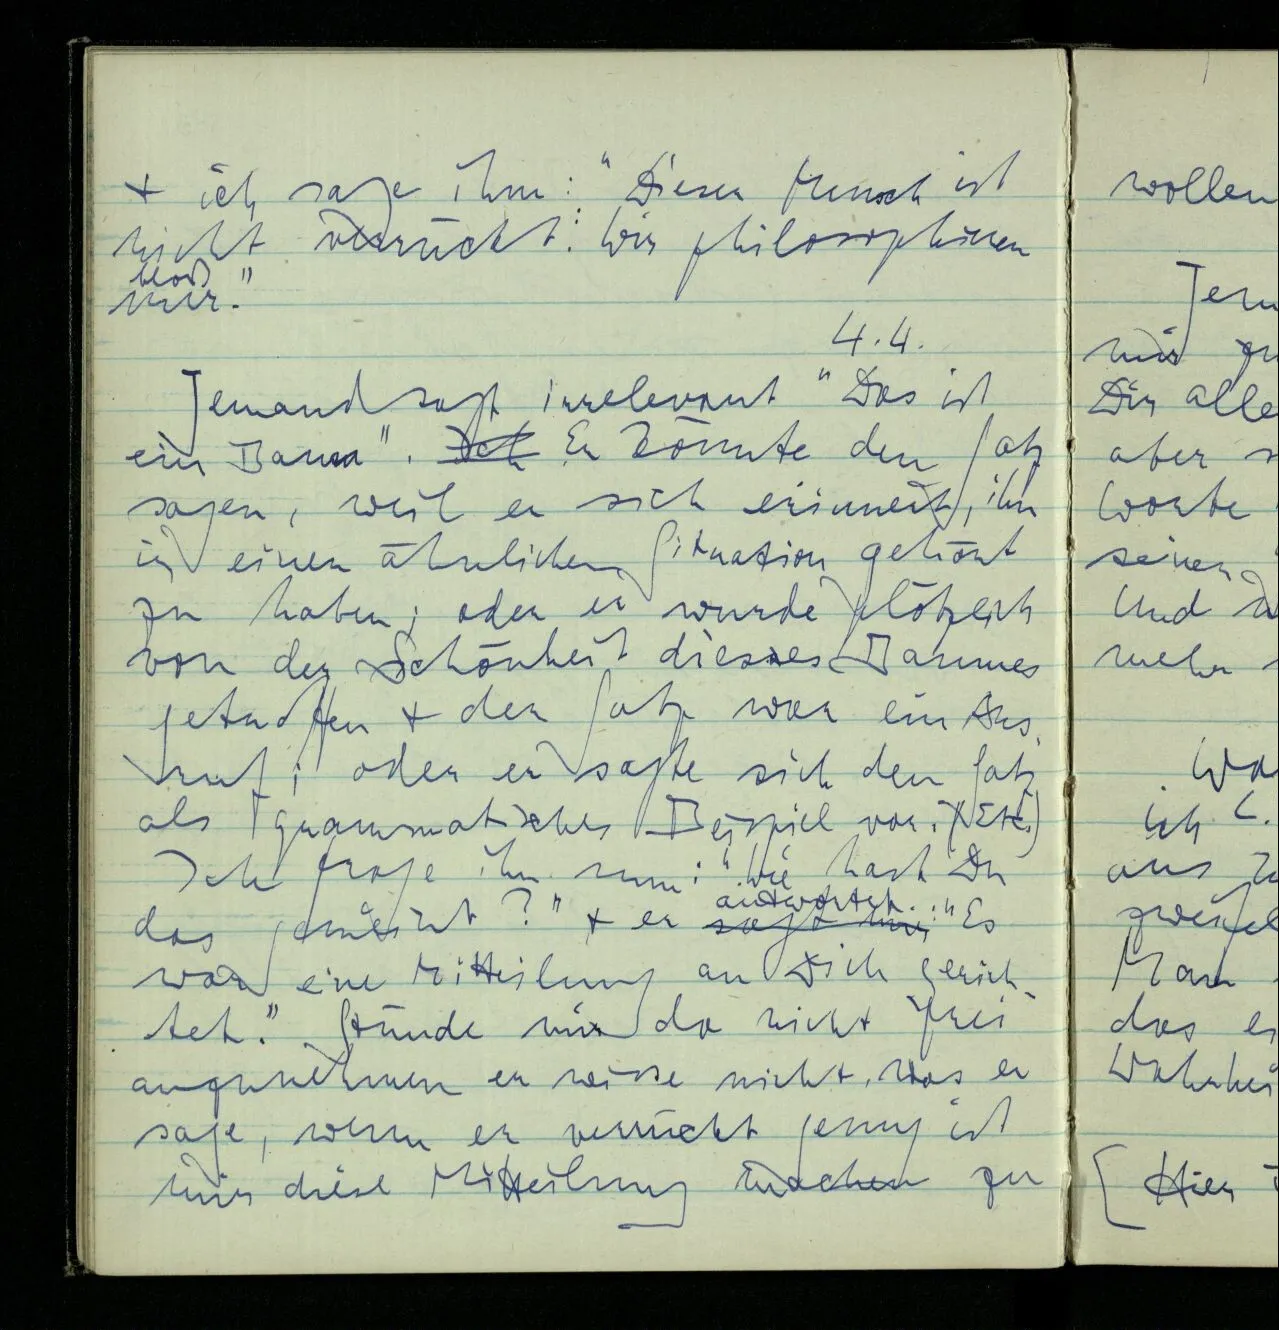 + ich sage ihm: "Dieser Mensch ist
nicht verrückt: Wir philosophieren
bloß
nur."
4.4.
Jemand sagt irrelevant "Das ist
ein Baum". Ich Er könnte den Satz
sagen, weil er sich erinnert, ihn
in einer ähnlichen Situation gehört
zu haben; oder er wurde plötzlich
von der Schönheit dieses Baumes
getroffen + der Satz war ein Aus-
ruf; oder er sagte sich den Satz
als grammatisches Beispiel vor. (Etc.)
Ich frage ihn nun: "Wie hast Du
das gemeint?" + er sagt mir antwortet: "Es
war eine Mitteilung an Dich gerich-
tet." Stünde mir da nicht frei
anzunehmen er wisse nicht, was er
sage, wenn er verrückt genug ist
mir diese Mitteilung machen zu
wollen
mir
Dir alle
aber
Worte
seinen
Und
mehr
ich L.
aus
Man
das er
[Hier